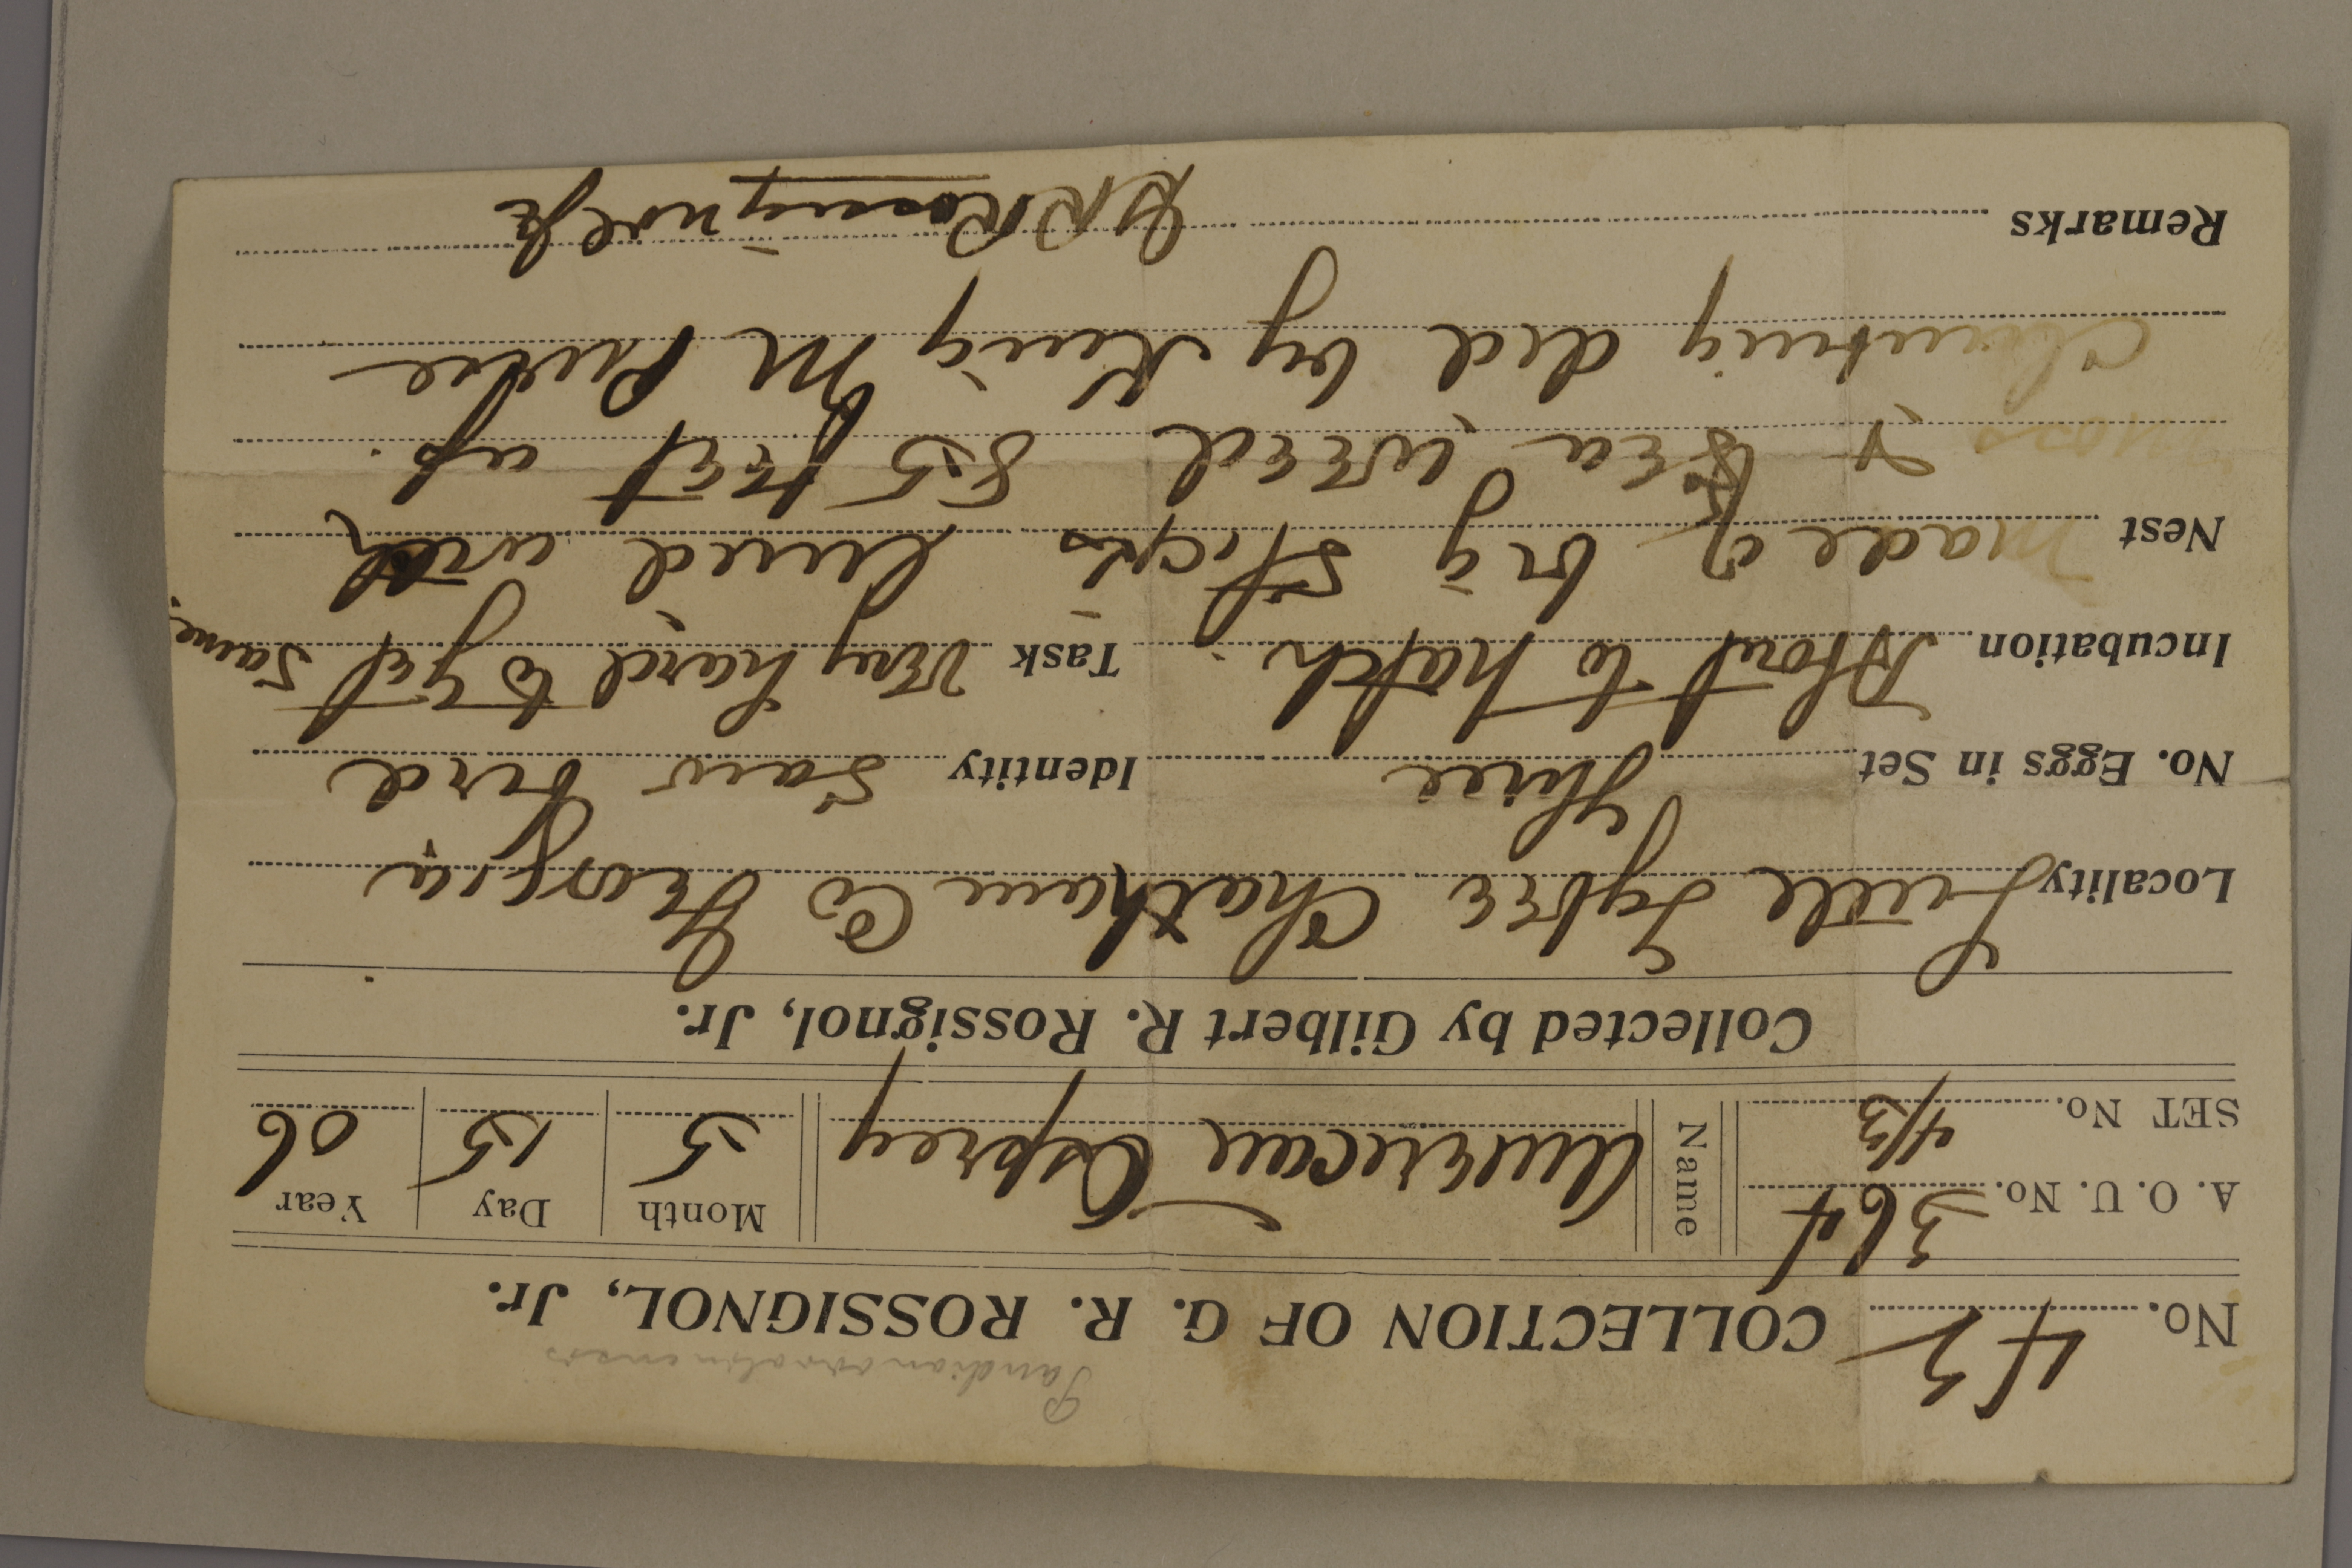 Pandion carolinensis
No. 42 COLLECTION OF G. R. ROSSIGNOL, Jr.
A. O. U. No. 364 Name American Osprey Month 5 Day 15 Year 06
SET No. 4/3
Collected by Gilbert R. Rossignol, Jr.
Locality Little Tybee Chatham Co Georgia
No. Eggs in Set Three Identity Saw bird
Incubation About to hatch. Task Very hard to get same.
Nest Made of big sticks lined with
moss & sea weed 85 feet up.
Climbing did by King M
Remarks G R Rossignol Jr